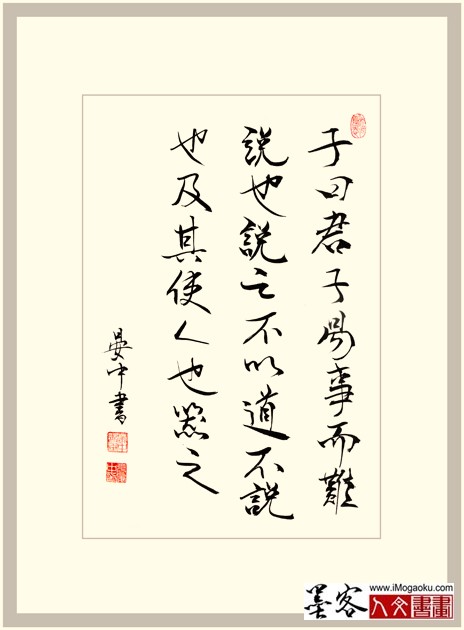 子曰君子易事而難
説也説之不以道不説
也及其使人也器之
晏中書
墨客
www.iMogaoku.com
人文書畫